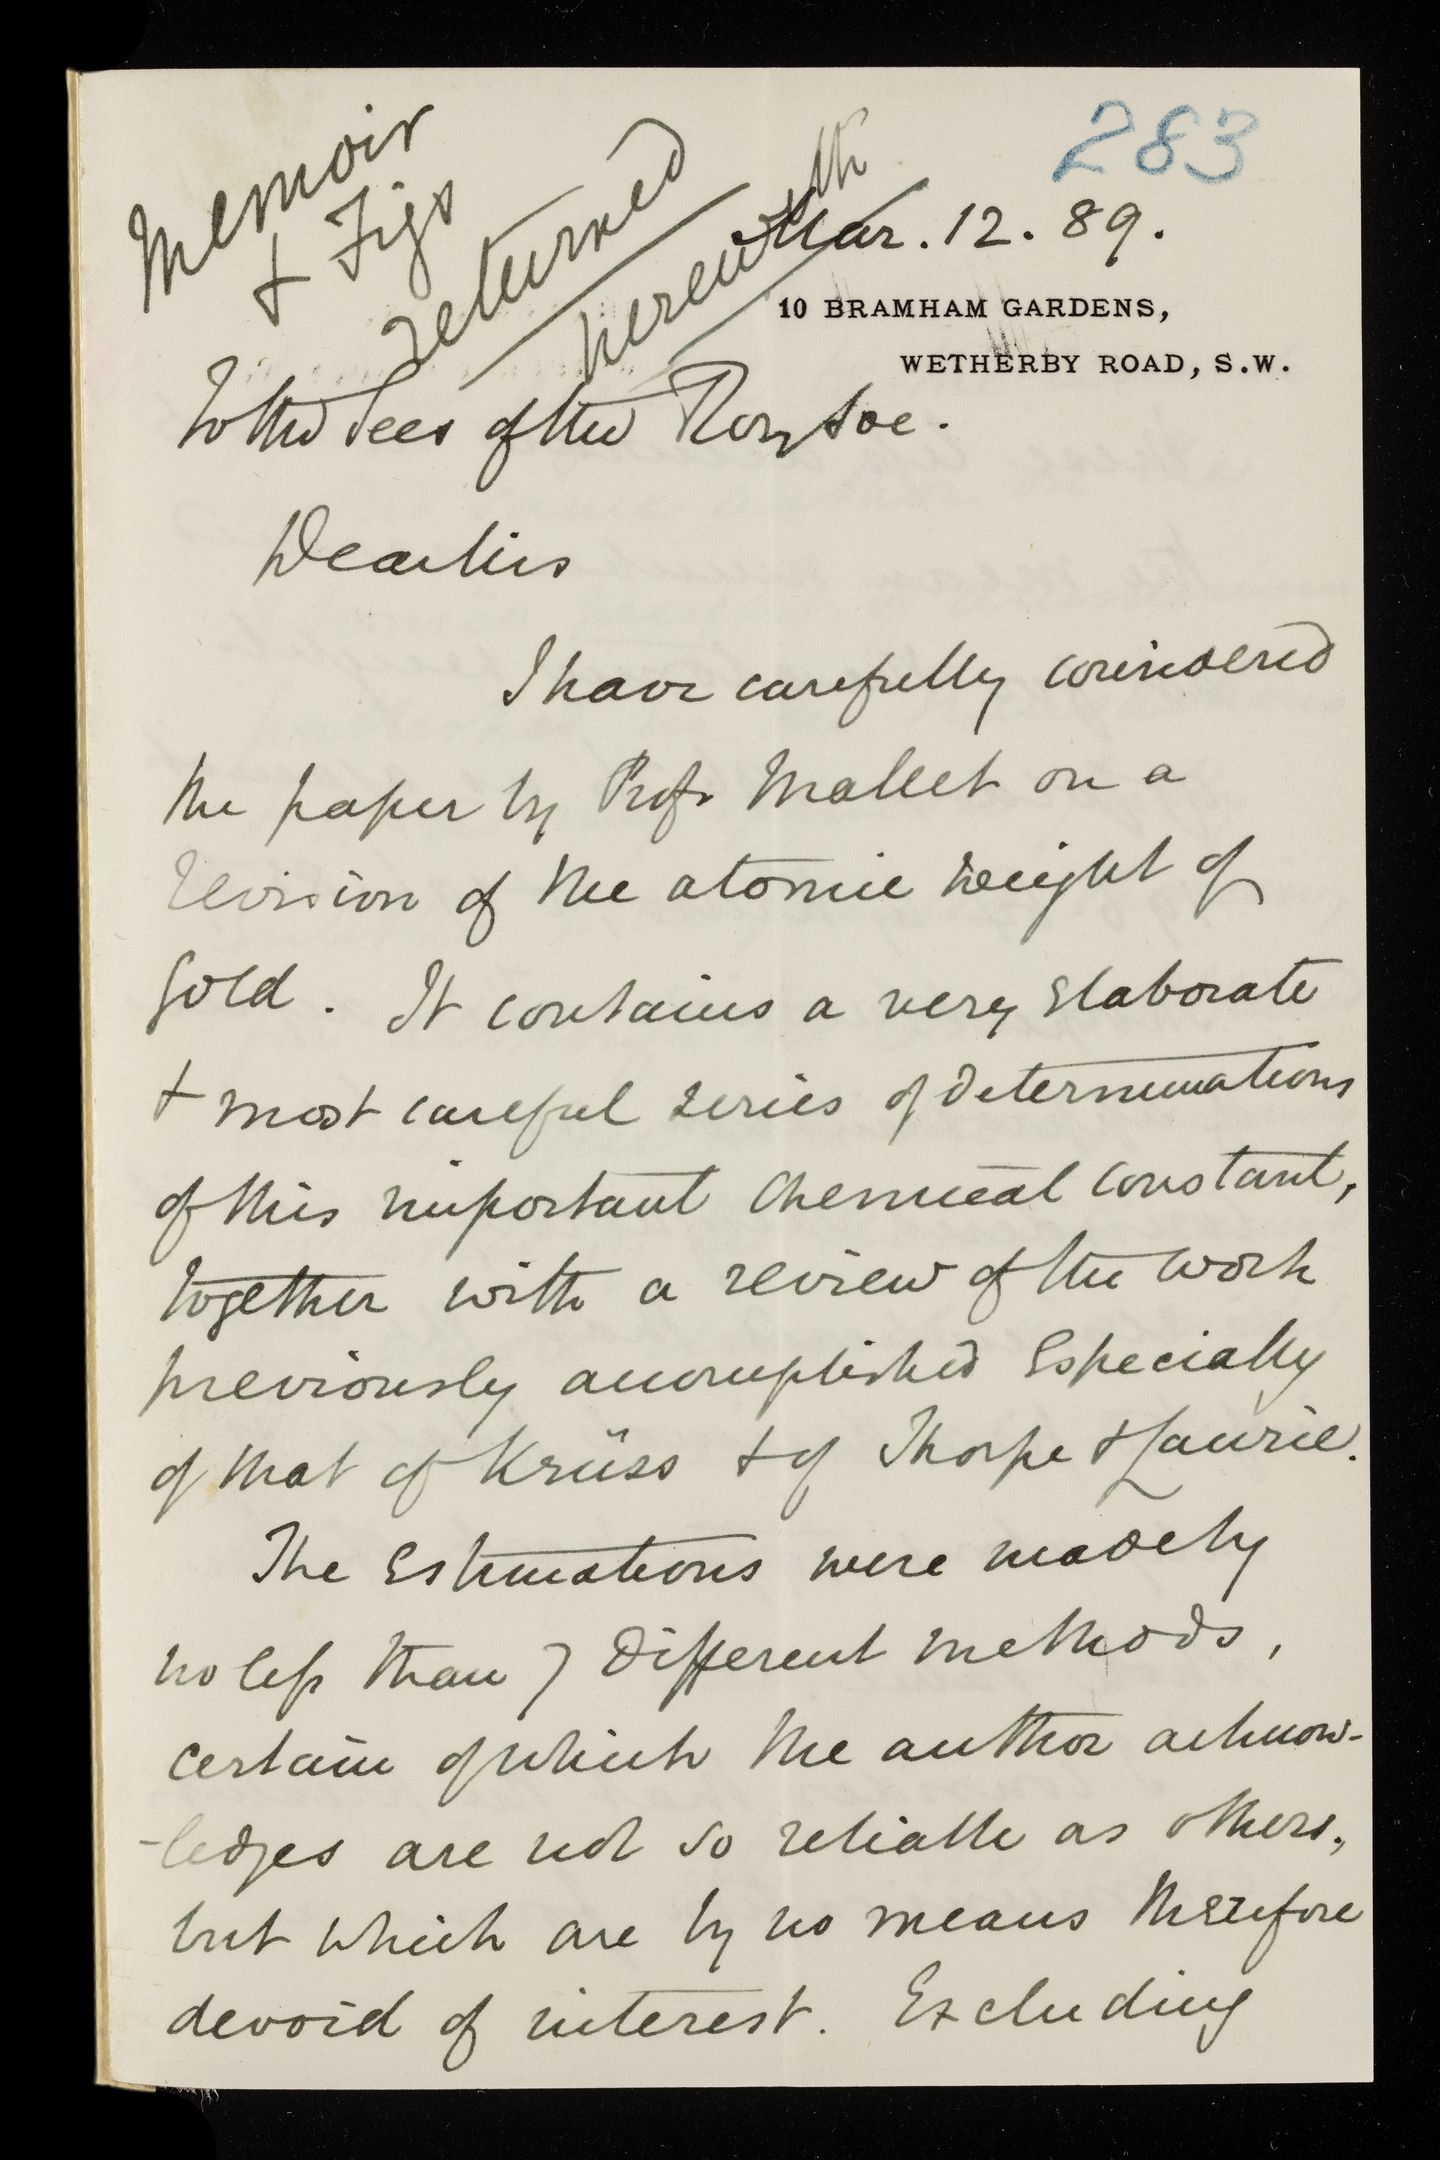 283
Memoir
& Figs
returned
herewith
Mar. 12. 89.
10 BRAMHAM GARDENS,
WETHERBY ROAD, S.W.
To the Secs of the Roy Soc.
Dear Sirs
I have carefully considered
the paper by Profr Mallet on a
revision of the atomic weight of
Gold. It contains a very elaborate
& most careful series of determinations
of this important Chemical constant,
together with a review of the work
previously accomplished especially
of that of Krüss & of Thorpe & Laurie.
The estimations were made by
no less than 7 different methods,
certain of which the author acknow-
-ledges are not so reliable as others,
but which are by no means therefore
devoid of interest. Excluding